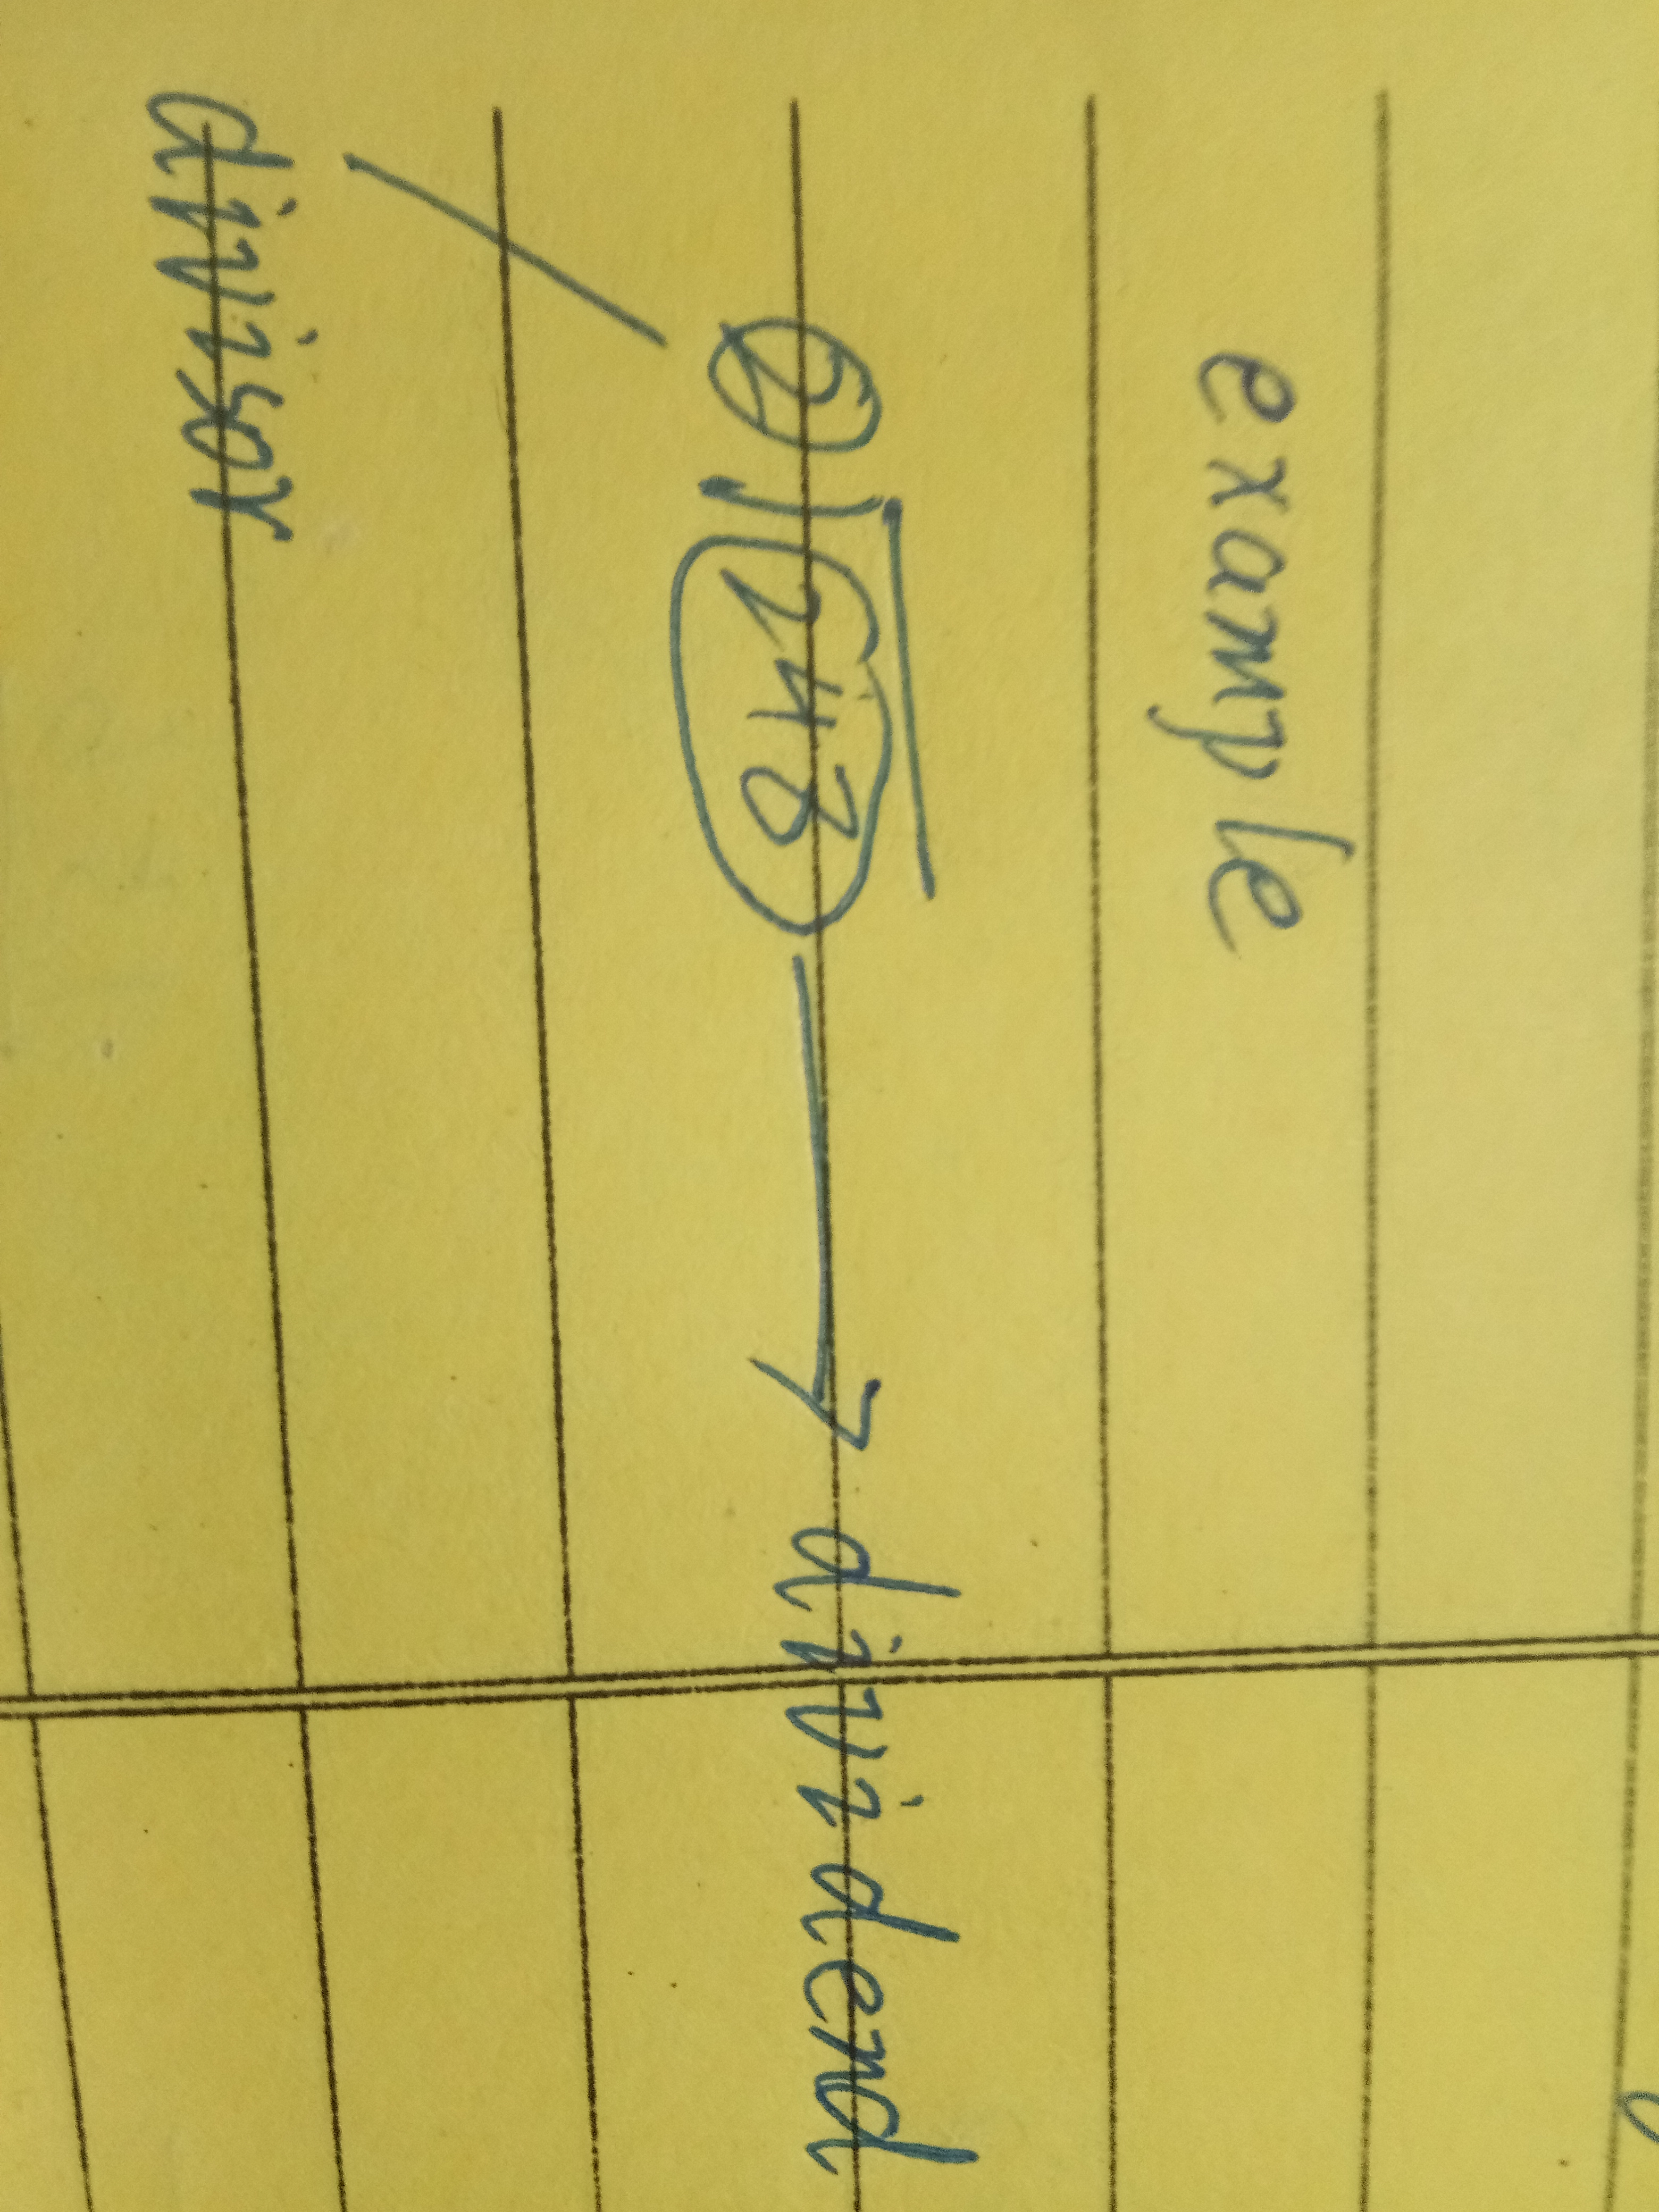 example
2)248 → dividend
divisor